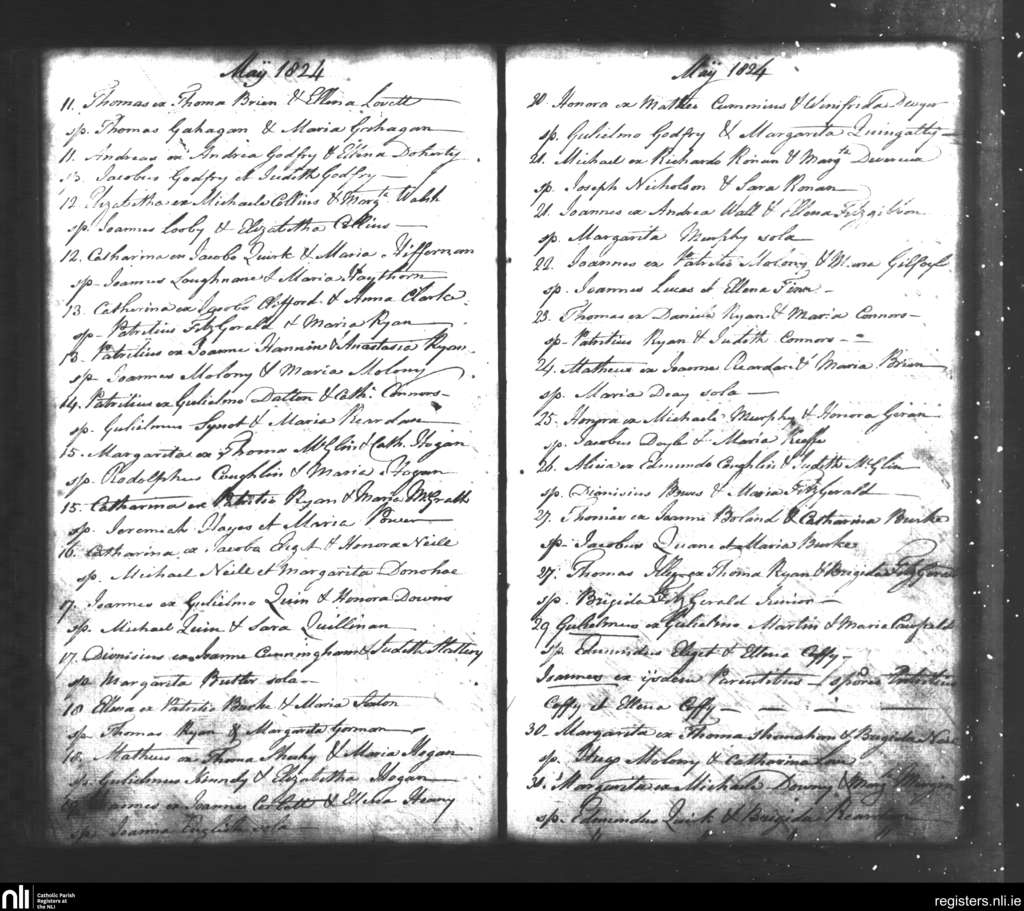 May 1824
11. Thomas ex Thoma Brien & Ellena Lovett
sp. Thomas Gahagan & Maria Gahagan
11. Andreas ex Andrea Godfry & Ellena Doherty
13. Jacobus Godfry et Judith Godfry
12. Elizabetha ex Michaele Collins & Margta Walsh
sp. Joannes Looby & Elizabetha Collins
12. Catharina ex Jacobo Quirk & Maria Hiffernan
sp. Joannes Loughnane & Maria Haythorn
13. Catherina ex Jacobo Clifford & Anna Clarke
sp. Patritius FitzGerald & Maria Ryan
13. Patritius ex Joanne Hannin & Anastasia Ryan
sp. Joannes Molony & Maria Molony
14. Patritius ex Gulielmo Dalton & Cath: Connors
sp. Gulielmus Synot & Maria Reardan
15. Margarita ex Thoma McGlin & Cath. Hogan
sp. Rodolphus Coughlin & Maria Hogan
15. Catharina ex Patritio Ryan & Maria McGrath
sp. Jeremiah Hayes et Maria Power
16. Catharina ex Jacobo & Honora Neile
sp. Michael Neile et Margarita Donohoe
17. Joannes ex Gulielmo Quin & Honora Downs
sp. Michael Quin & Sara Quillinan
17. Dionisius ex Joanne Cunningham & Judith Slattery
sp. Margarita Butler sola
18 Ellena ex Patritio Burke & Maria Sexton
sp. Thomas Ryan & Margarita Gorman
18. Matheus ex Thoma Sheehy & Maria Hogan
sp. Gulielmus Kennedy & Elizabetha Hogan
Joannes ex Joanne Corbett & Ellena Heany
sp. Joanna English sola
May 1824
20. Honora ex Matheo Cummins & Winifrida Dwyer
sp. Gulielmo Godfry & Margarita Quingatty
21. Michael ex Richardo Ronan & Margta Devereux
sp. Joseph Nicholson & Sara Ronan
21. Joannes ex Andrea Wall & Ellena Fitzgibbon
sp. Margarita Murphy sola
22. Joannes ex Patritio Molony & Maria Gilfoyl
sp. Joannes Lucas et Ellena Finn
23. Thomas ex Daniele Ryan & Maria Connors
sp. Patritius Ryan & Judith Connors
24. Matheus ex Joanne Reardan & Maria Brien
sp. Maria Deay sola
25. Honora ex Michaele Murphy & Honora Geran
sp. Jacobus Doyle & Maria Keeffe
26. Alicia ex Edmundo Coughlin & Judith McGlin
sp. Dionisius & Maria FitzGerald
27. Thomas ex Joanne Boland & Catharina Burke
sp. Jacobus Quane et Maria Burke
27. Thomas Illeg. ex Thoma Ryan & Brigida FitzGerald
sp. Brigida FitzGerald Junior
29 Gulielmus ex Gulielmo Martin & Maria
sp. Edmundus & Ellena Coffy
Joannes ex ijsdem Parentibus sp. Patritius
Coffy et Ellena Coffy
30. Margarita ex Thoma Shanahan & Brigida
sp. Hugo Molony & Catharina
31. Margarita ex Michaele Downy & Margta
sp. Edmundus Quirk & Brigida Reardan
nli
Catholic Parish
Registers at
the NLI
registers.nli.ie